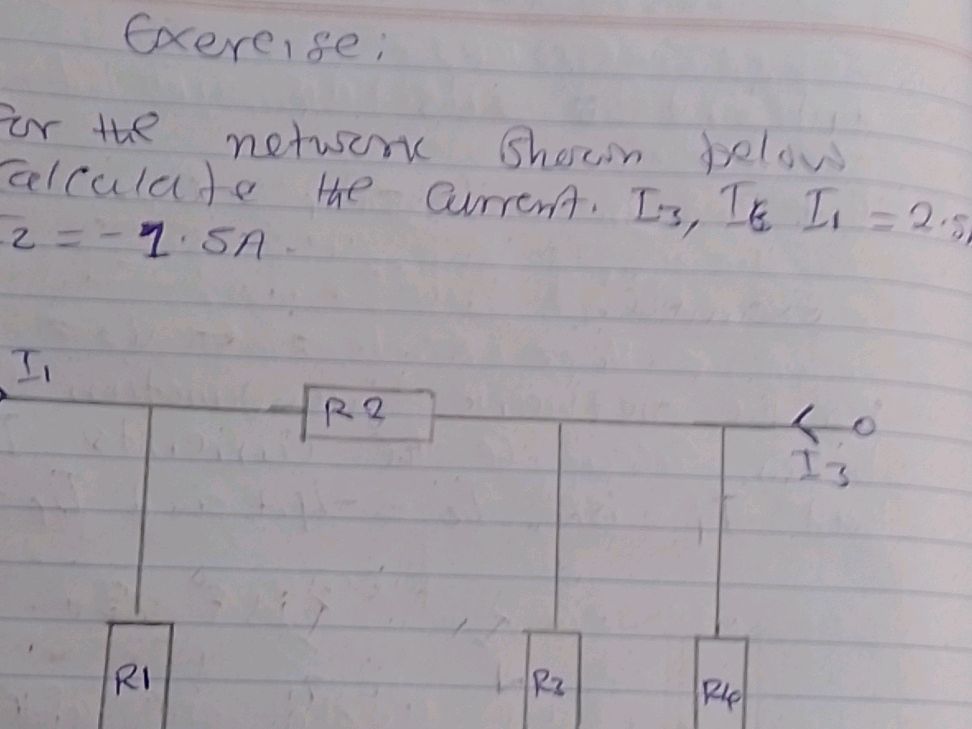 Exercise:
For the network shown below
Calculate the current. I3, I1 = 2.5
2 = -1.5A.
I1
R2
I3
R1
R3
R4